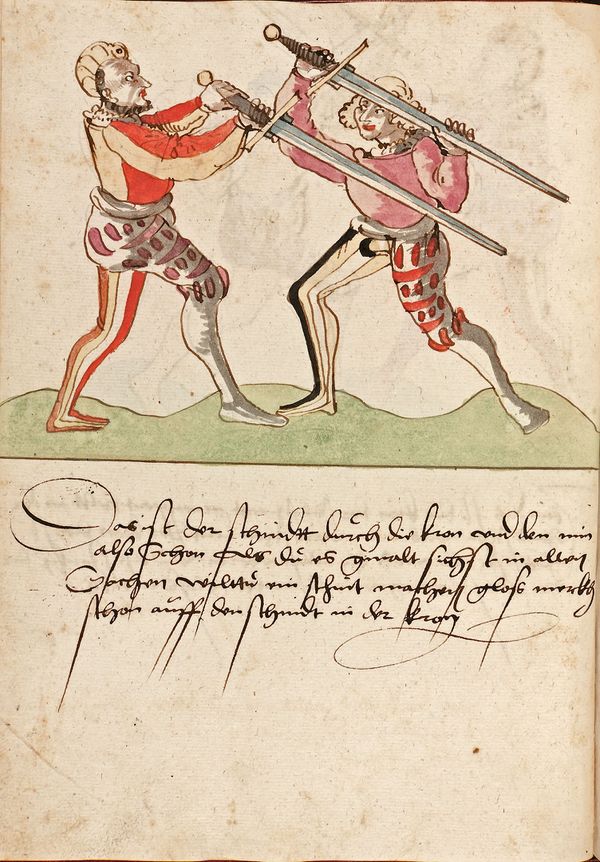 Das ist der schnidtt durch die kron vnd den nim
also schon Als du es gmalt sichst in allen
Sachen wiltu ein schnit machen gloss merckh
schon auff den schnidt in der kron